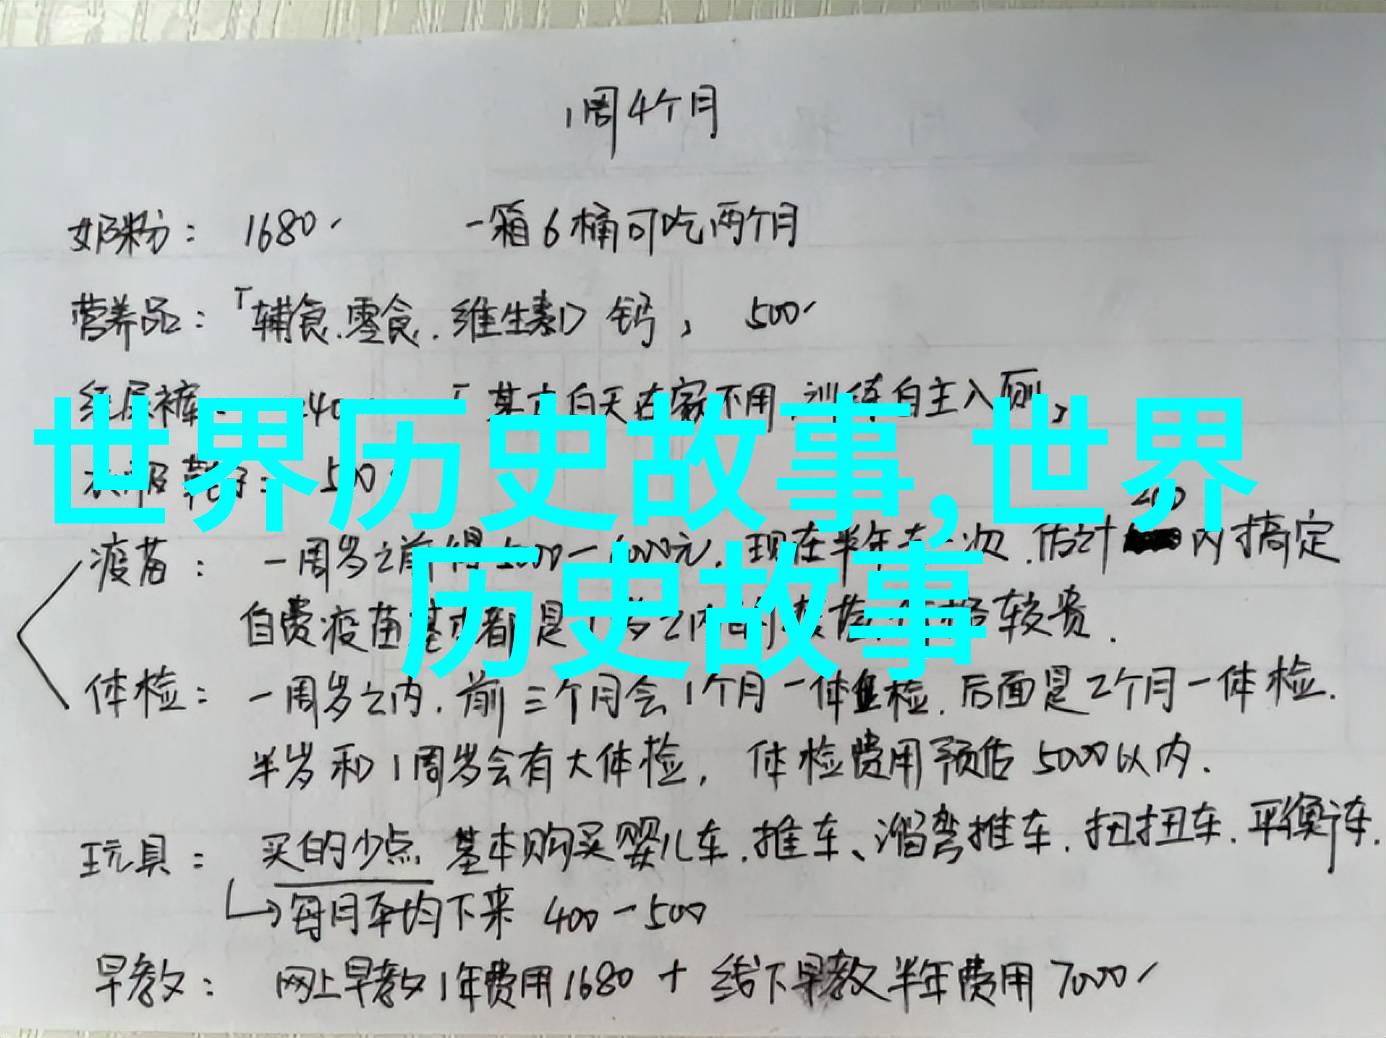 1周4个月
奶粉： 1680 一箱6桶可吃两个月
营养品：「辅食.零食.维生素D 钙， 500
纸尿裤 240 「基本白天在家不用 训练自主入厕
世界历史故事,世界
500
200
疫苗： 一周岁之前得 元.现在半年 次.估计 内搞定
历史故事
自费疫苗基本都是1岁之内的疫苗 较贵.
体检： 一周岁之内.前三个月会1个月一体检.后面是2个月一体检.
半岁和1周岁会有大体检， 体检费用预估5000以内.
玩具： 买的少点 基本购买婴儿车.推车、溜弯推车.扭扭车.平衡车.
→每月平均下来 400-500
早教： 网上早教1年费用1680 + 线下早教半年费用7000